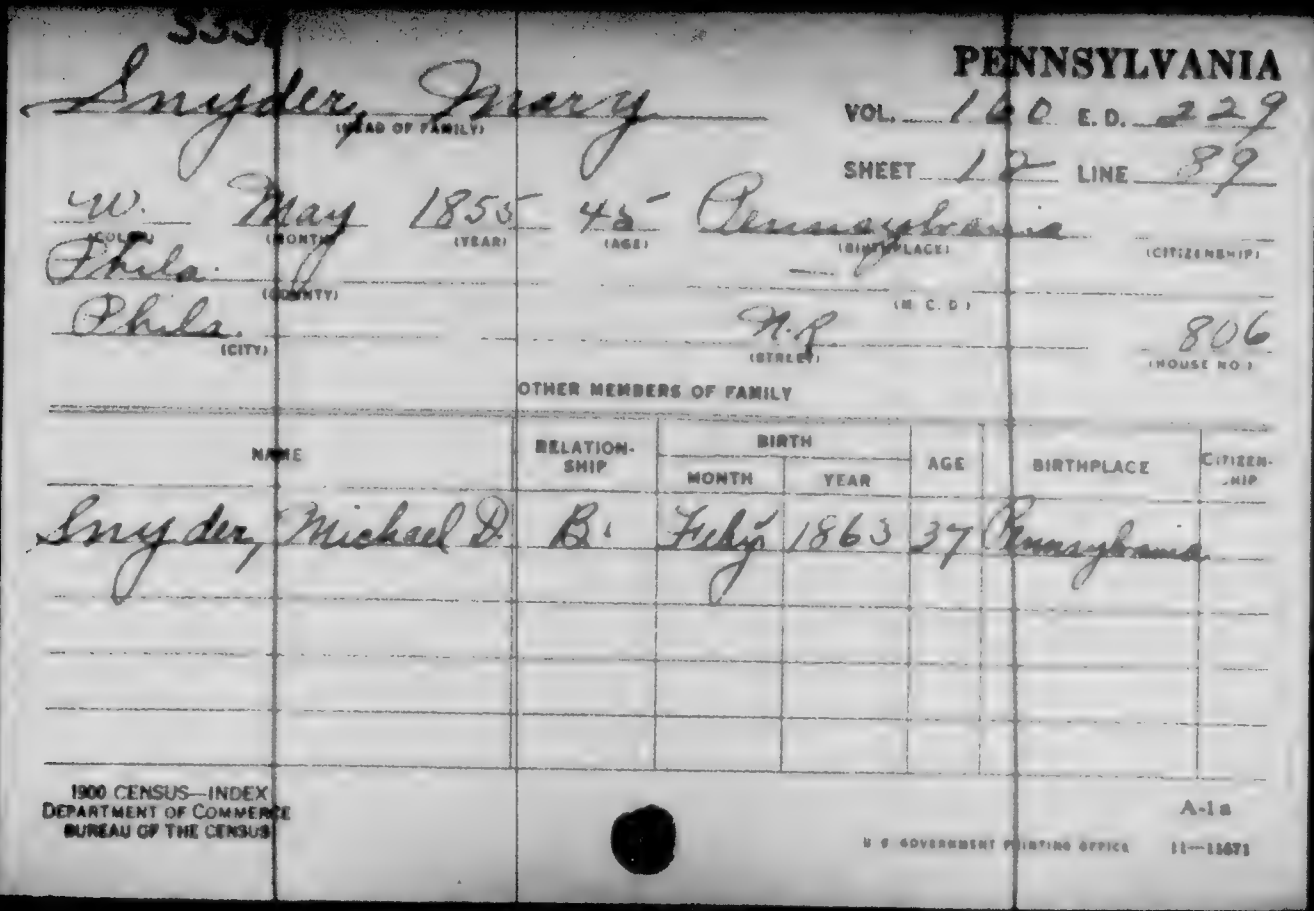 PENNSYLVANIA
Snyder, Mary
(HEAD OF FAMILY)
VOL. 160 E.D. 229
SHEET 12 LINE 89
W. May 1855 45 Pennsylvania
(COLOR) (MONTH) (YEAR) (AGE) (BIRTHPLACE) (CITIZENSHIP)
Phila.
(COUNTY) (M.C.D)
Phila. N.R 806
(CITY) (STREET) (HOUSE NO.)
OTHER MEMBERS OF FAMILY
NAME RELATION-SHIP BIRTH MONTH YEAR AGE BIRTHPLACE CITIZEN-SHIP
Snyder, Michael D. B. Feby 1863 37 Pennsylvania
1900 CENSUS—INDEX
DEPARTMENT OF COMMERCE
BUREAU OF THE CENSUS
A-1a
U S GOVERNMENT PRINTING OFFICE 11—11671